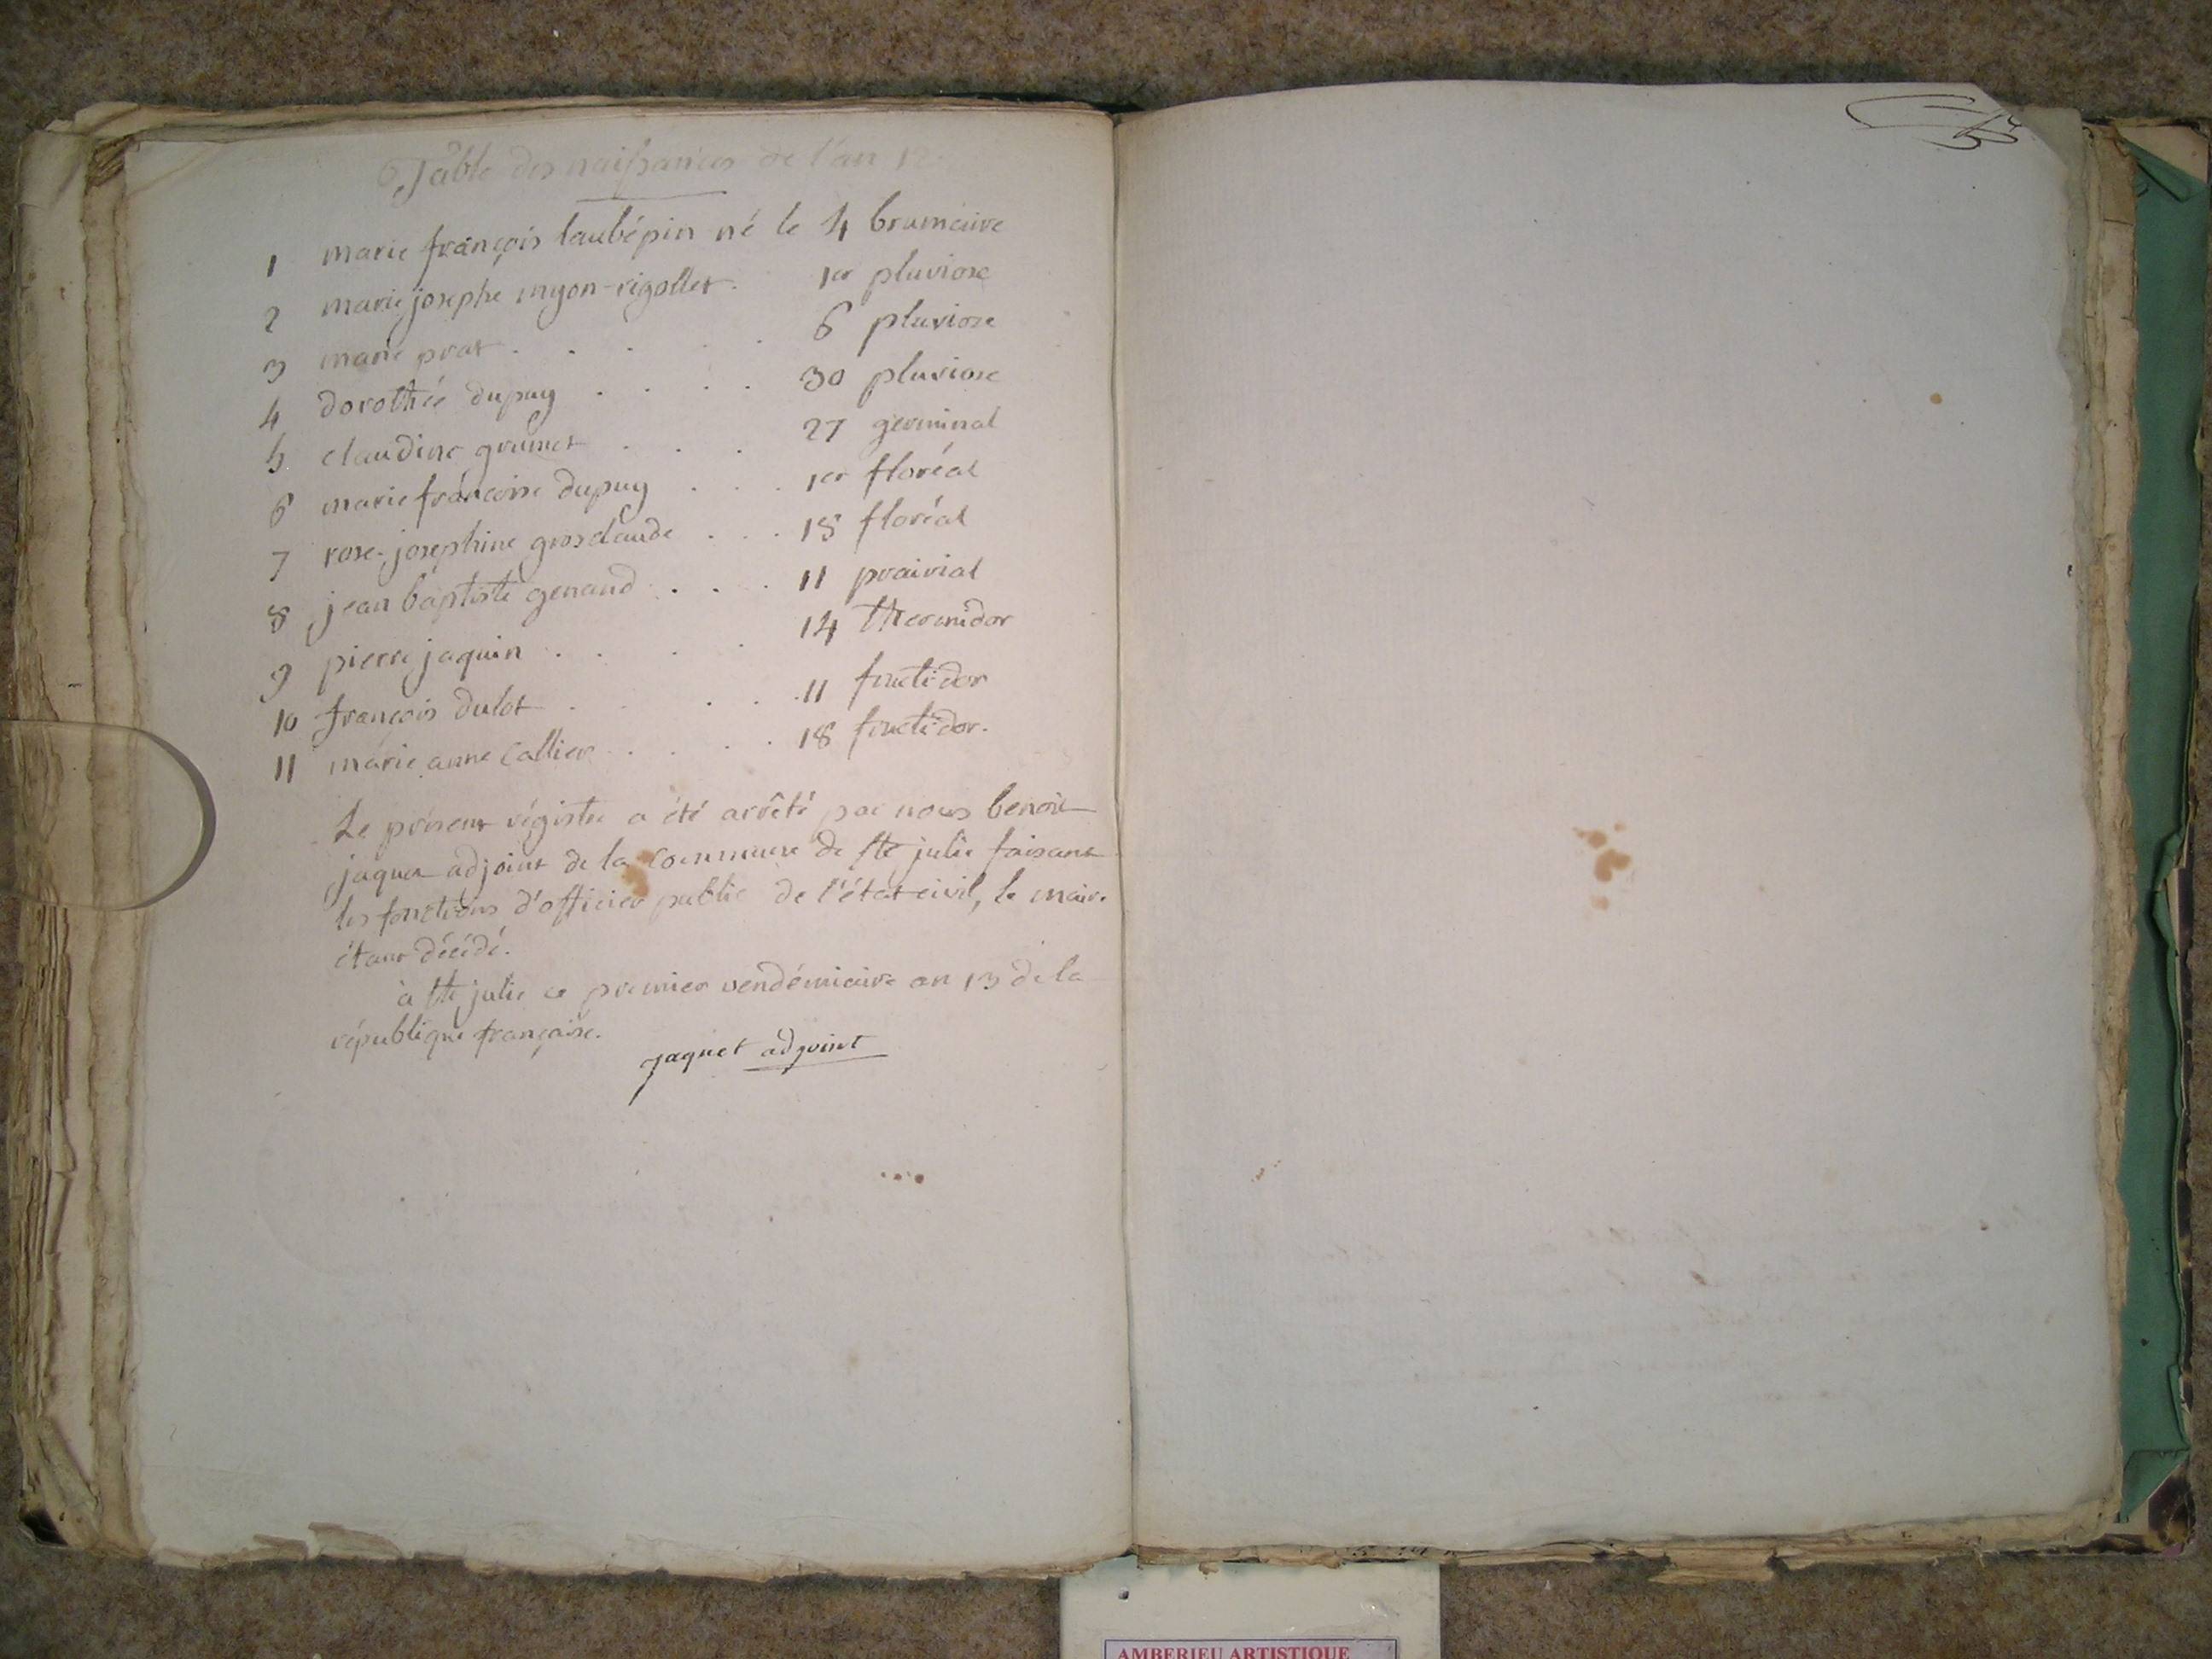 Table des naissances de l'an 12.
1 marie françois laubépin né le 4 brumaire
2 marie josephe myon-rigollet. 1er pluviose
3 marie prat . . . . . 6 pluviose
4 dorothée dupuy . . . . 30 pluviose
5 claudine grumet . . . 27 germinal
6 marie françoise dupuy . . . 1er floréal
7 rose-josephine grosclaude . . . 18 floréal
8 jean baptiste genaud . . . 11 prairial
9 pierre jaquin . . . . 14 thermidor
10 françois dulot . . . . 11 fructidor
11 marie anne Callier . . . . 18 fructidor.
Le présent régistre a été arrêté par nous benoit
jaquet adjoint de la Commune de ste julie faisant
les fonctions d'officier public de l'état civil, le maire
étant décédé.
à ste julie ce premier vendémiaire an 13 de la
république française.
jaquet adjoint
AMBERIEU ARTISTIQUE